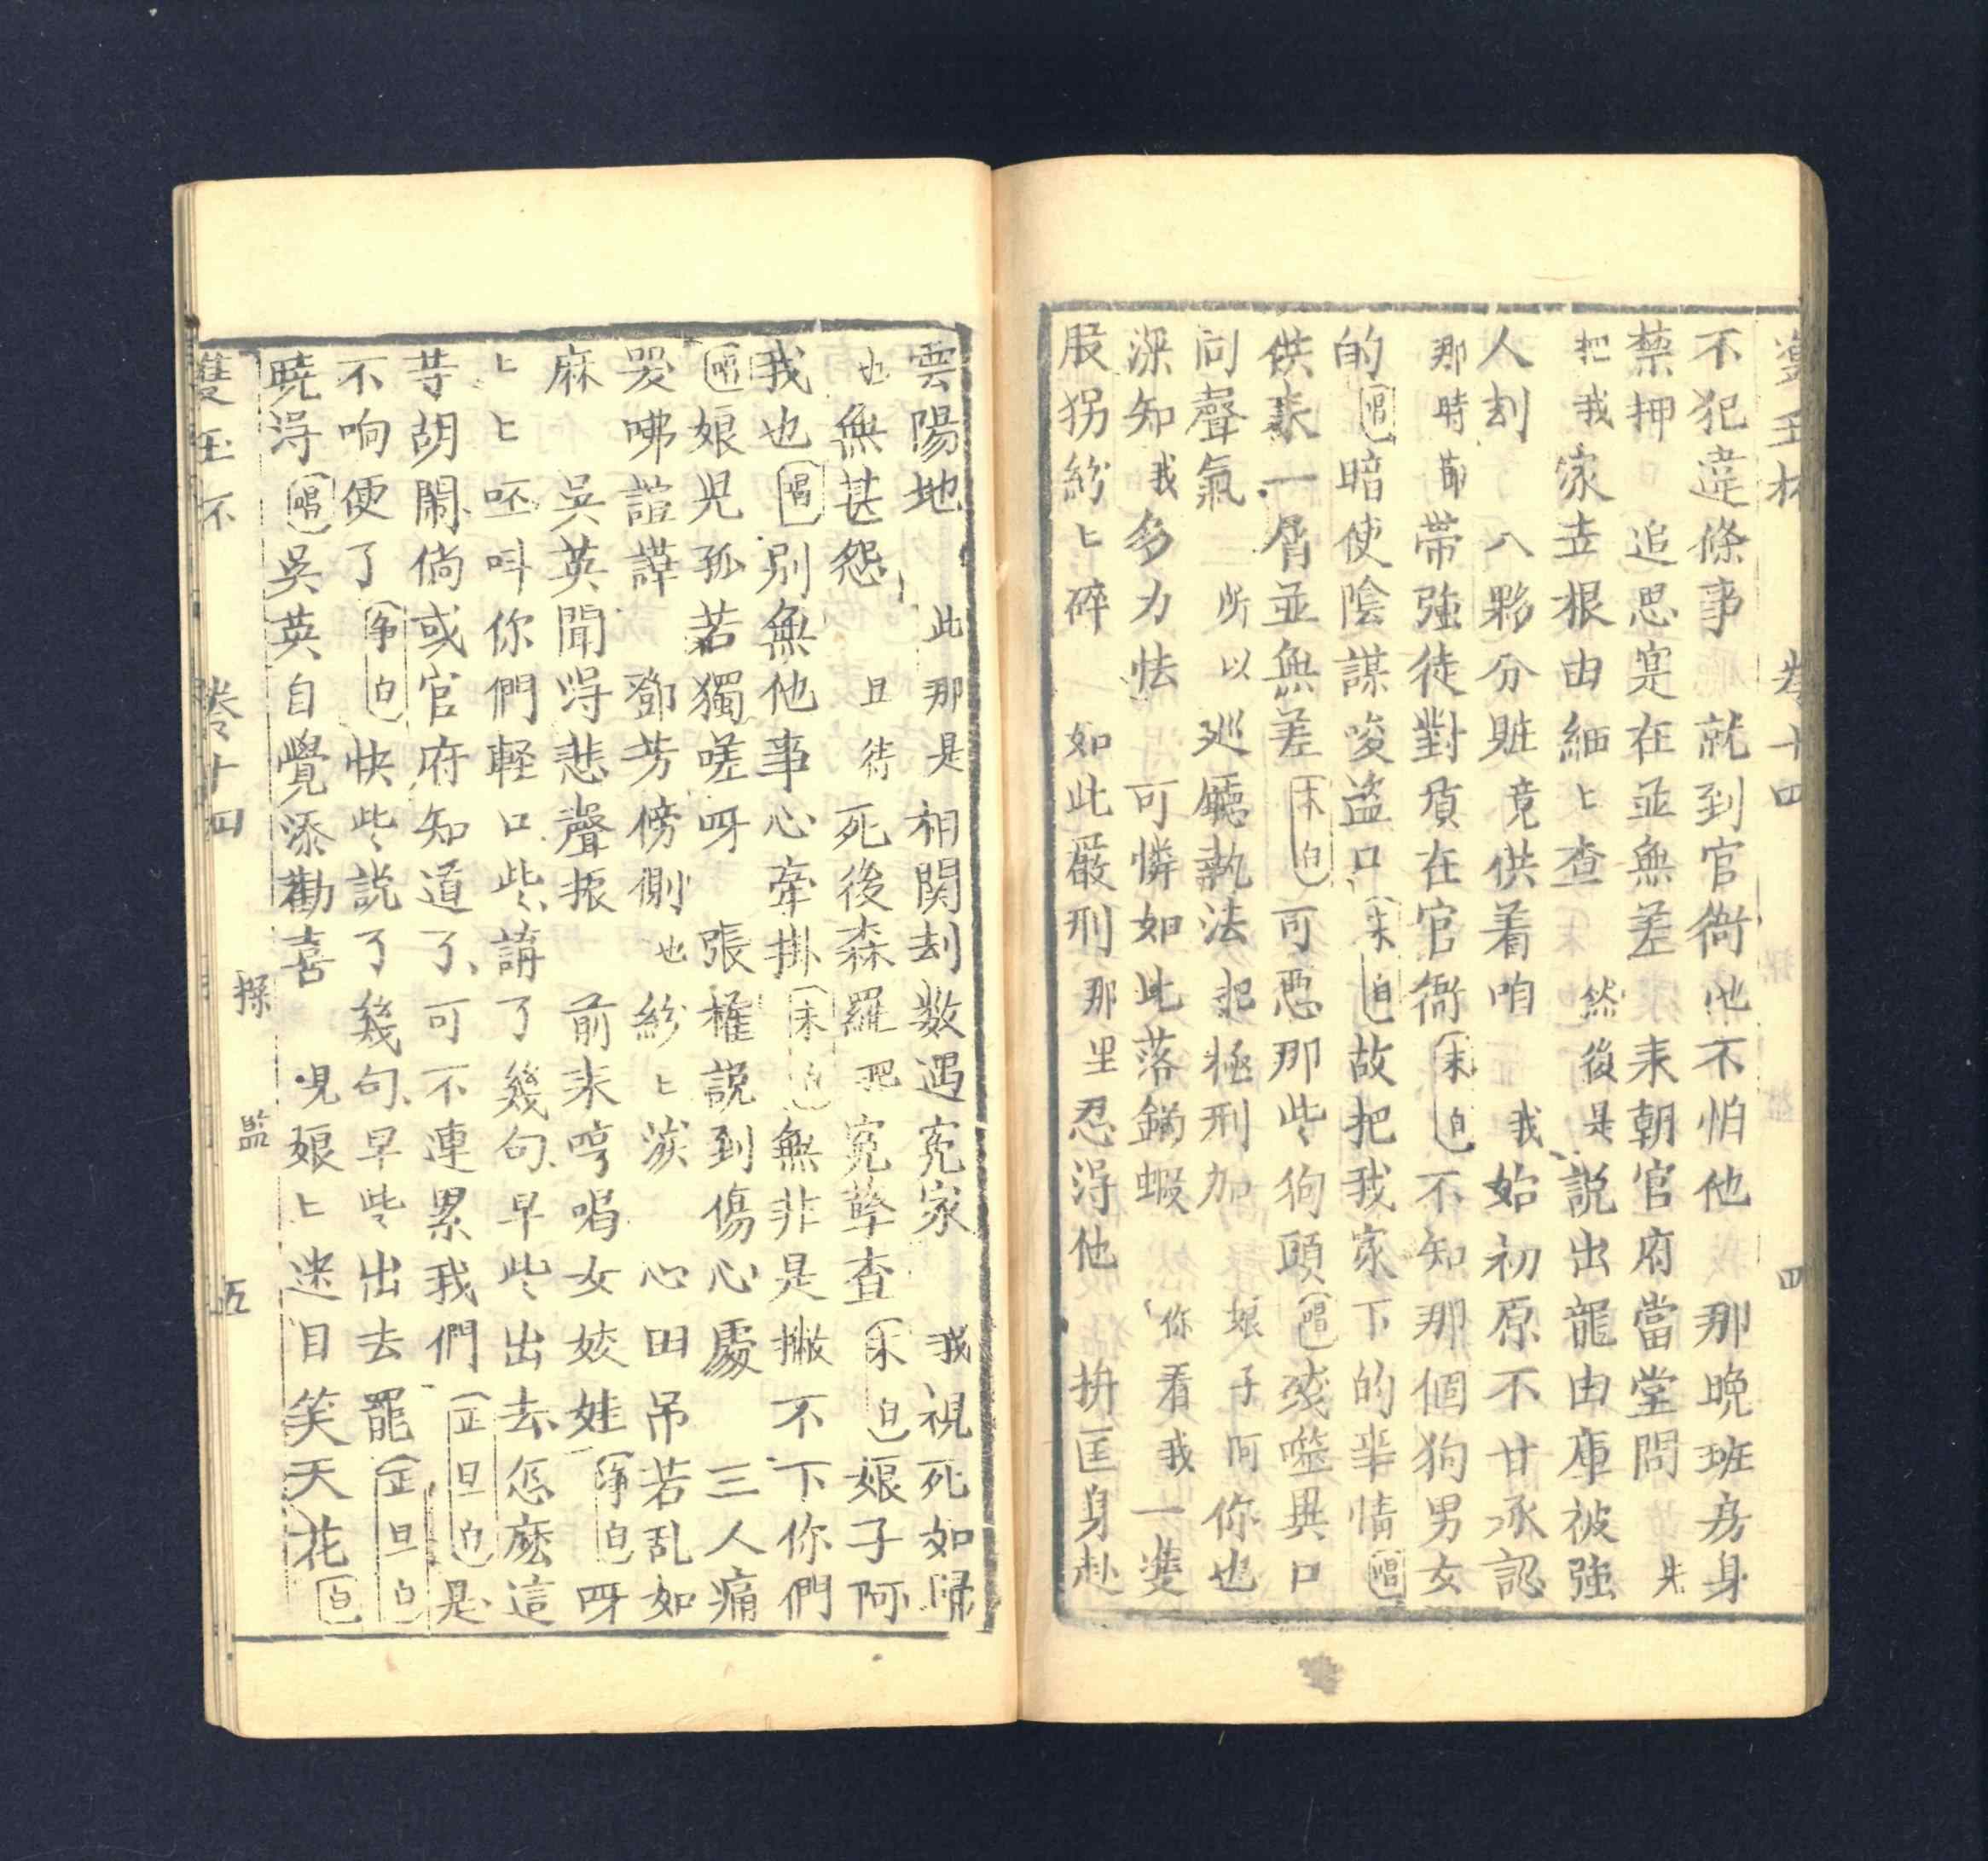 卷十四 四
不犯違條事 就到官衙他不怕他 那晚班房身
禁押 追思寔在並無差 耒朝官府當堂問 先
把我家壴根由細〻查 然後是説出龍由庫被強
人刦 八夥分賍竟供着咱 我始初原不甘承認
那時節帶強徒對質在官衙(末白)不知那個狗男女
的(唱)暗使陰謀唆盗口(末白)故把我家下的亊情(唱)
供耒一屑並無差(末白)可惡那些狗頭(唱)殘噬與口
同聲氣 所以廵廳執法把極刑加 娘子阿你也
深知我多力怯 可憐如此落鍋蝦 你看我一雙
股拐紛〻碎 如此嚴刑那里忍淂他 拚匡身赴
雲陽地 此那是相関刦数遇寃家 我視死如歸
也無甚怨 且待死後森羅把寃孽查(末白)娘子阿
我也(唱)别無他事心牽掛(末白)無非是撇不下你們
(唱)娘兒孤若獨嗟呀 張權説到傷心處 三人痛
哭咈諠譁 鄧芳傍側也紛〻淚 心田吊若乱如
麻 吳英聞淂悲聲振 前耒哼唱女姣娃(净白)呀
〻〻呸呌你們輕口些講了幾句早些出去怎麽這
䓁胡鬧倘或官府知道了可不連累我們(正旦白)是
不响便了(净白)快些説了幾句早些出去罷(正旦白)
曉淂(唱)吳英自覺添勸喜 哯娘〻迷目笑天花(白)
雙玉杯 卷十四 探監 五